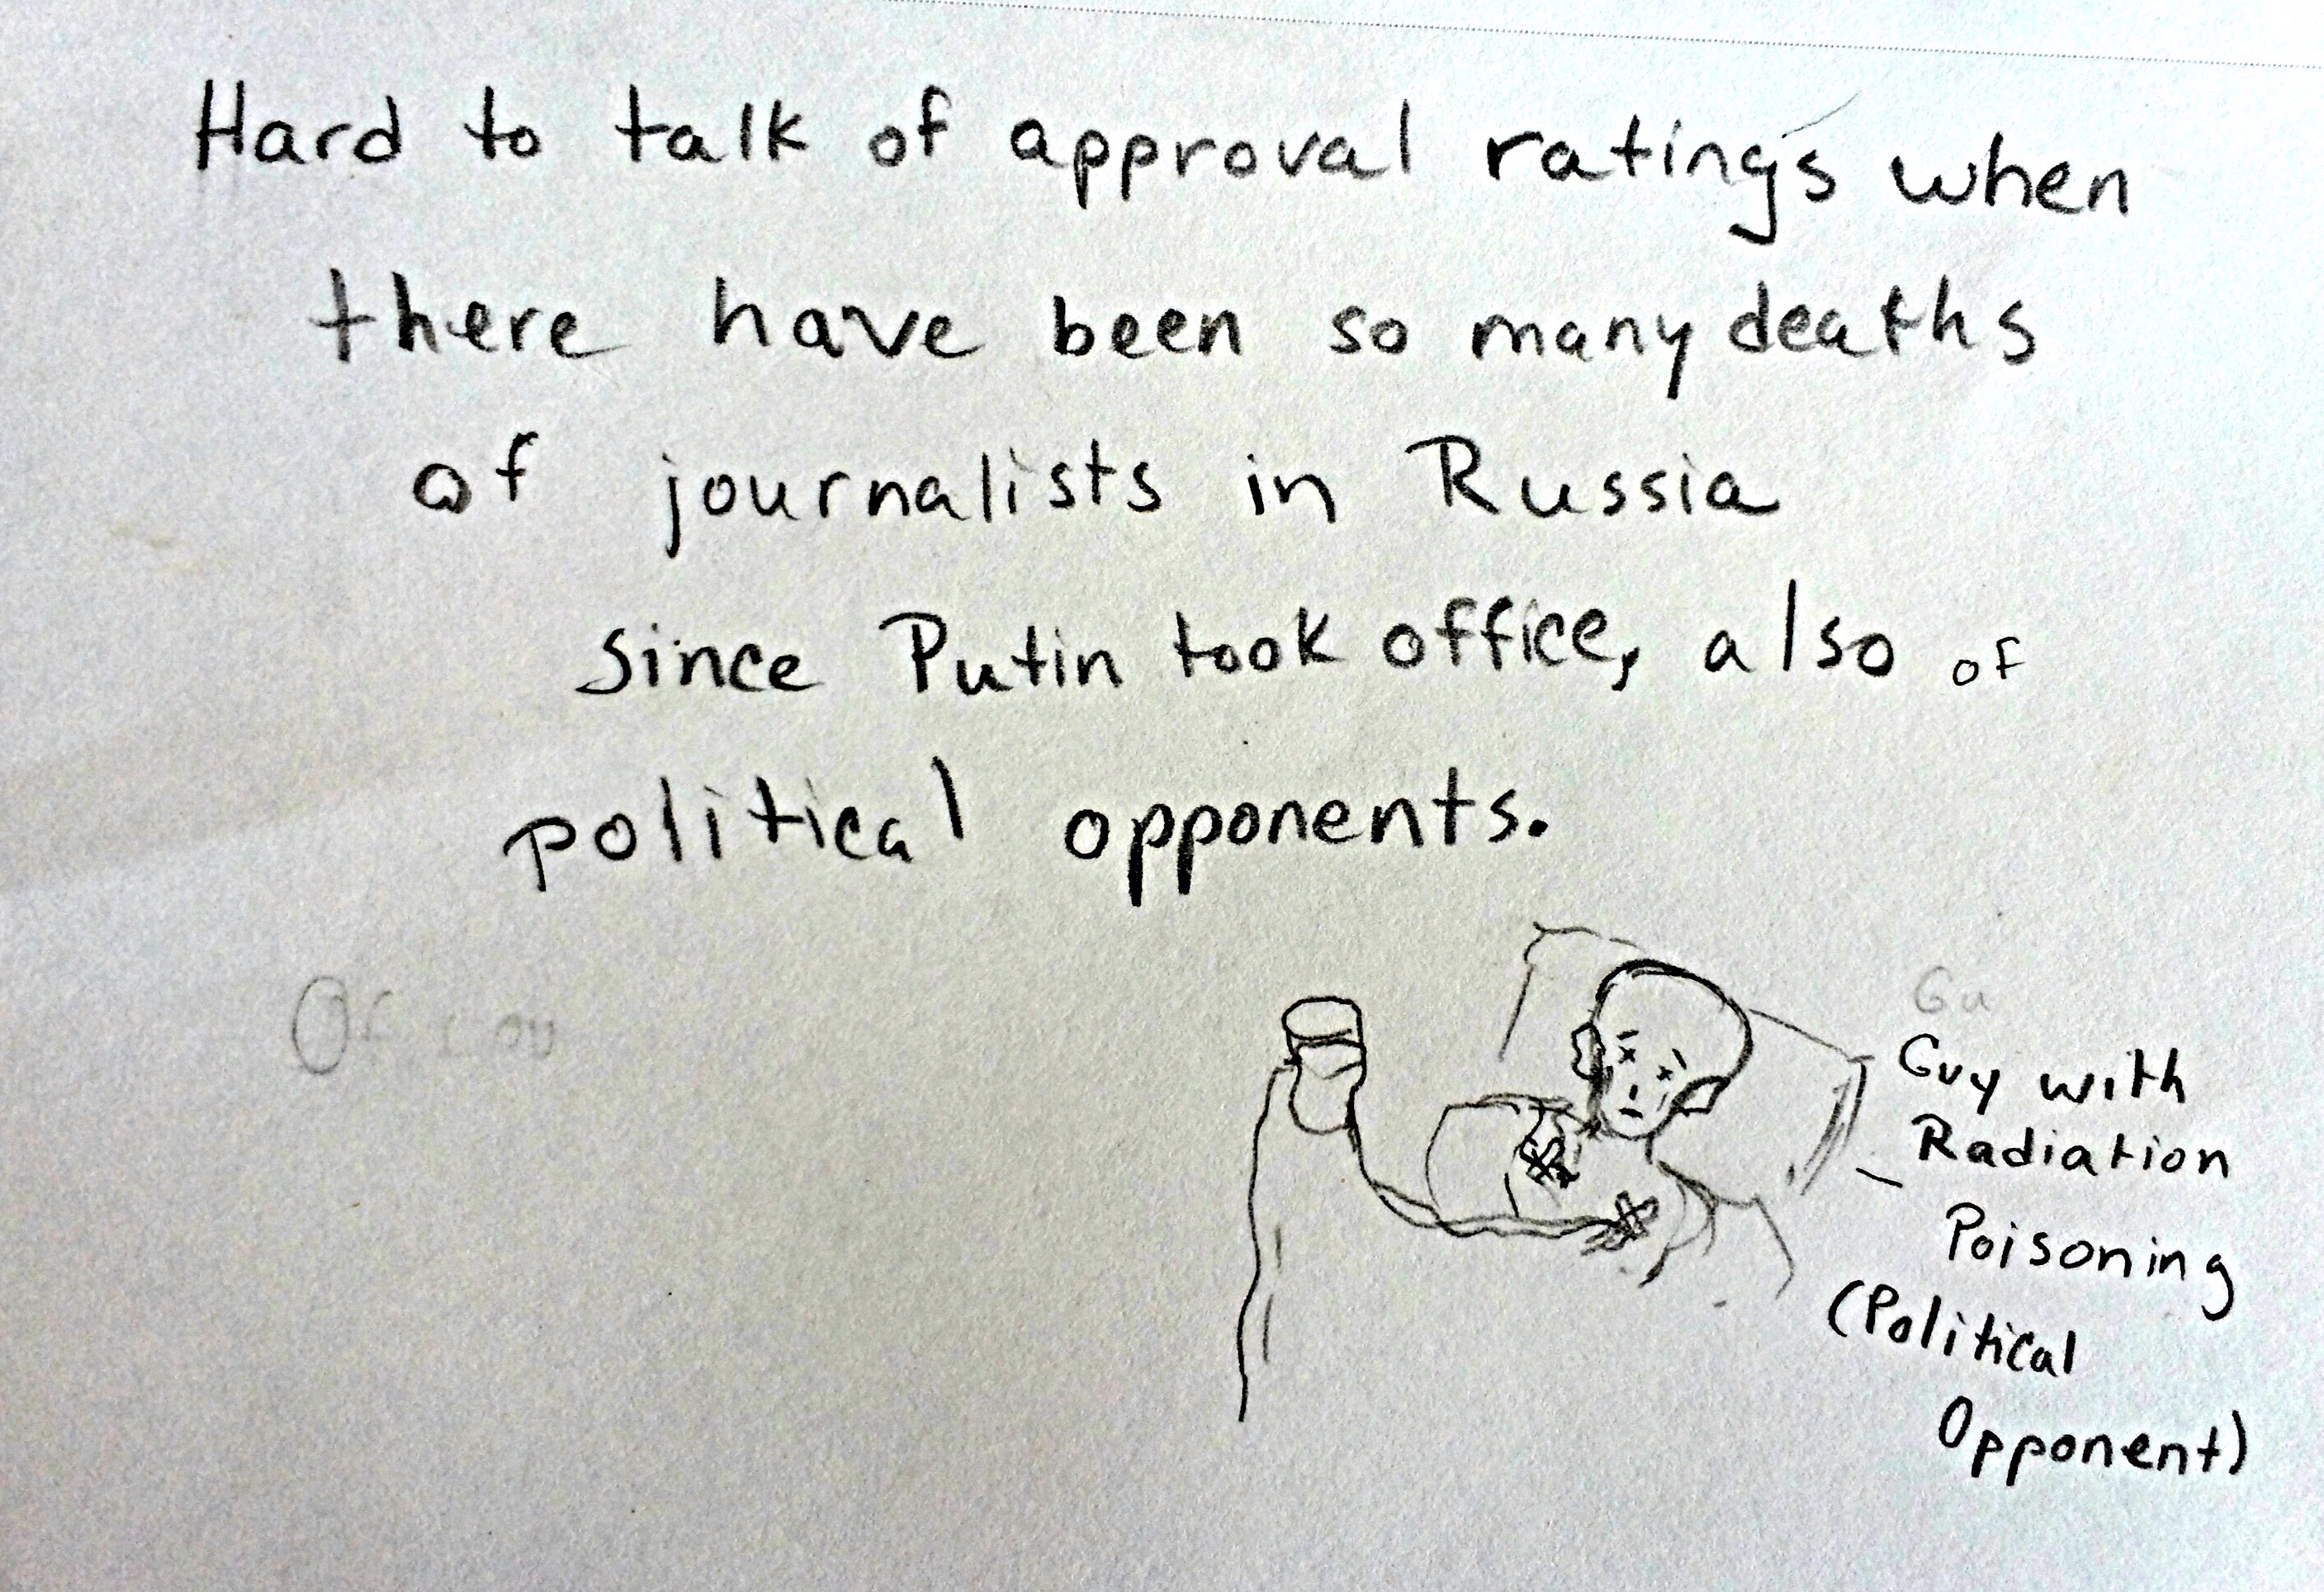 Hard to talk of approval ratings when
there have been so many deaths
of journalists in Russia
since Putin took office, also of
political opponents.
Gu
Guy with
Radiation
Poisoning
(Political
Opponent)